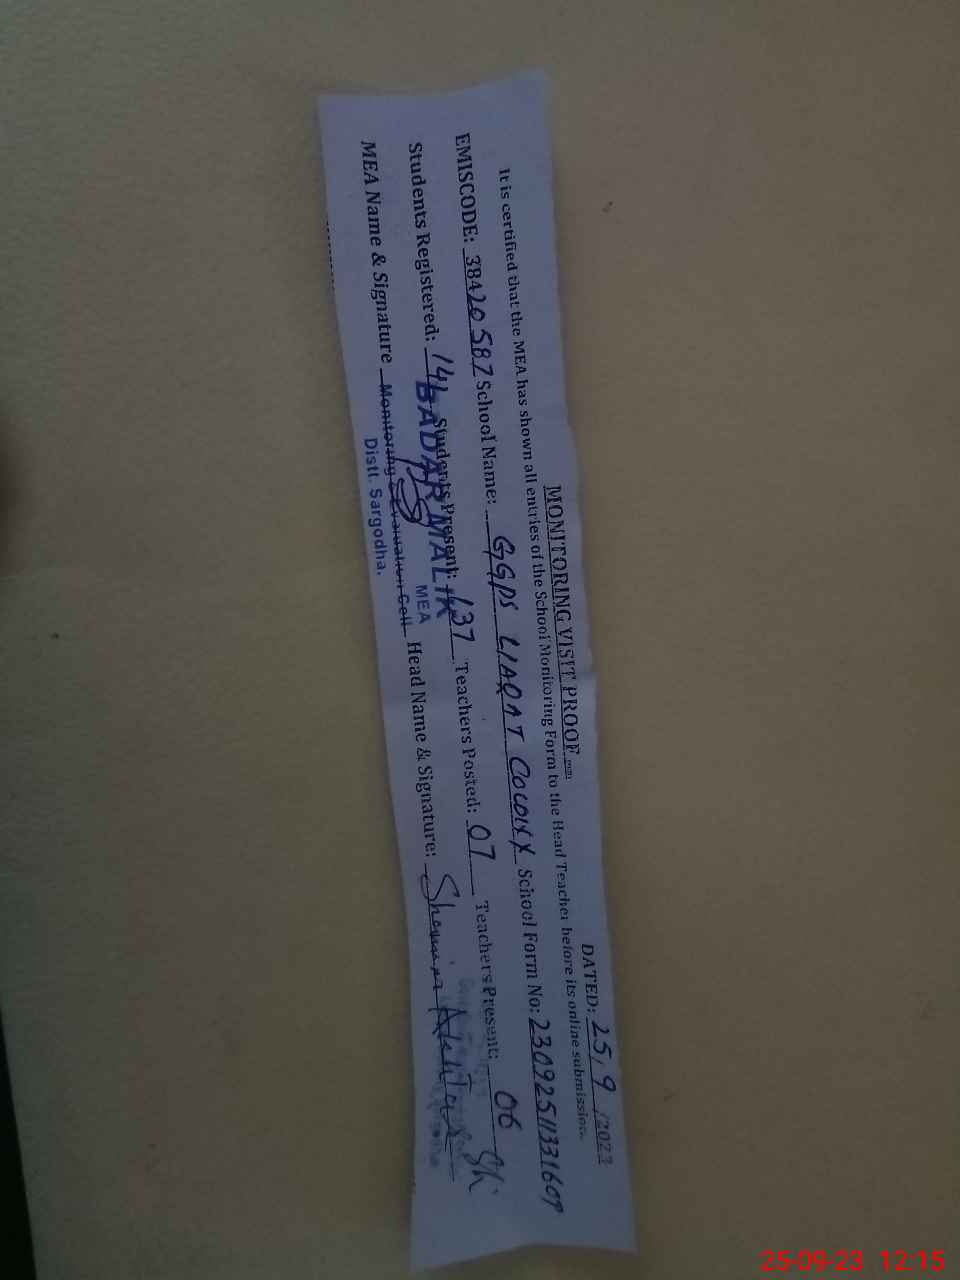 MONITORING VISIT PROOF
DATED: 25/9/2023
It is certified that the MEA has shown all entries of the School Monitoring Form to the Head Teacher before its online submission.
EMISCODE: 38420587 School Name: GGPS LIAQAT COLONY School Form No:
Students Registered: Students Present: 137 Teachers Posted: 07 Teachers Present: 06
BADAR MALIK
MEA
MEA Name & Signature Monitoring & Evaluation Cell Head Name & Signature:
Distt. Sargodha.
25-09-23 12:15